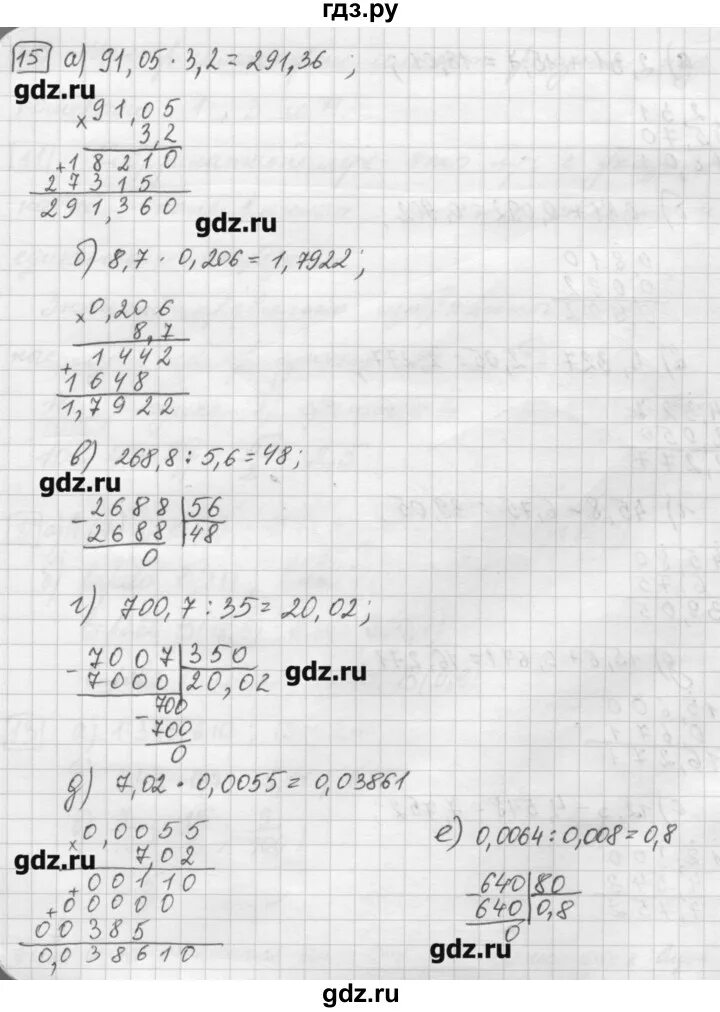 гдз.ру
15 а) 91,05 · 3,2 = 291,36 ;
gdz.ru
× 91,05
3,2
+ 18210
27315
291,360
gdz.ru
б) 8,7 · 0,206 = 1,7922 ;
× 0,206
8,7
+ 1442
1648
1,7922
в) 268,8 : 5,6 = 48 ;
gdz.ru
- 2688 | 56
2688 | 48
0
г) 700,7 : 35 = 20,02 ;
- 7007 | 350
7000 | 20,02
gdz.ru
700
- 700
0
д) 7,02 · 0,0055 = 0,03861
× 0,0055
7,02
gdz.ru
+ 00110
+ 00000
00385
0,038610
е) 0,0064 : 0,008 = 0,8
640 | 80
640 | 0,8
0
gdz.ru
gdz.ru